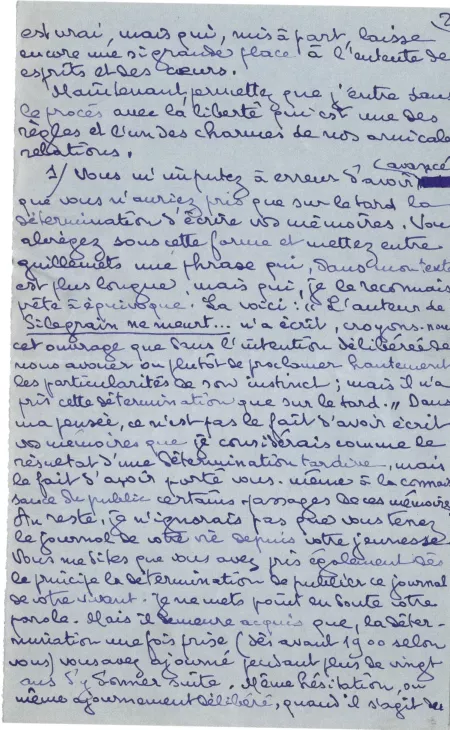 2
est vrai, mais qui, mis à part, laisse
encore une si grande place à l'entente des
esprits et des cœurs.
Maintenant permettez que j'entre dans
le procès avec la liberté qui est une des
règles et l'un des charmes de nos amicales
relations.
1/ Vous m'imputez à erreur d'avoir (avancé
que vous n'auriez pris que sur le tard la
détermination d'écrire vos mémoires. Vous
abrégez sous cette forme et mettez entre
guillemets une phrase qui, dans mon texte
est plus longue, mais qui, je le reconnais
prête à équivoque. La voici : "L'auteur de
Si le grain ne meurt... n'a écrit, croyons-nous
cet ouvrage que dans l'intention délibérée de
nous avouer ou plutôt de proclamer hautement
les particularités de son instinct ; mais il n'a
pris cette détermination que sur le tard." Dans
ma pensée, ce n'est pas le fait d'avoir écrit
vos mémoires que je considérais comme le
résultat d'une détermination tardive, mais
le fait d'avoir porté vous-même à la connais
sance du public certains passages de ces mémoires
Au reste, je n'ignorais pas que vous tenez
le journal de votre vie depuis votre jeunesse
Vous me dites que vous avez pris également dès
le principe la détermination de publier ce journal
de votre vivant. Je ne mets point en doute votre
parole. Mais il demeure acquis que, la déter-
mination une fois prise (dès avant 1900 selon
vous) vous avez ajourné pendant plus de vingt
ans d'y donner suite. Même hésitation, ou
même ajournement délibéré, quand il s'agit de